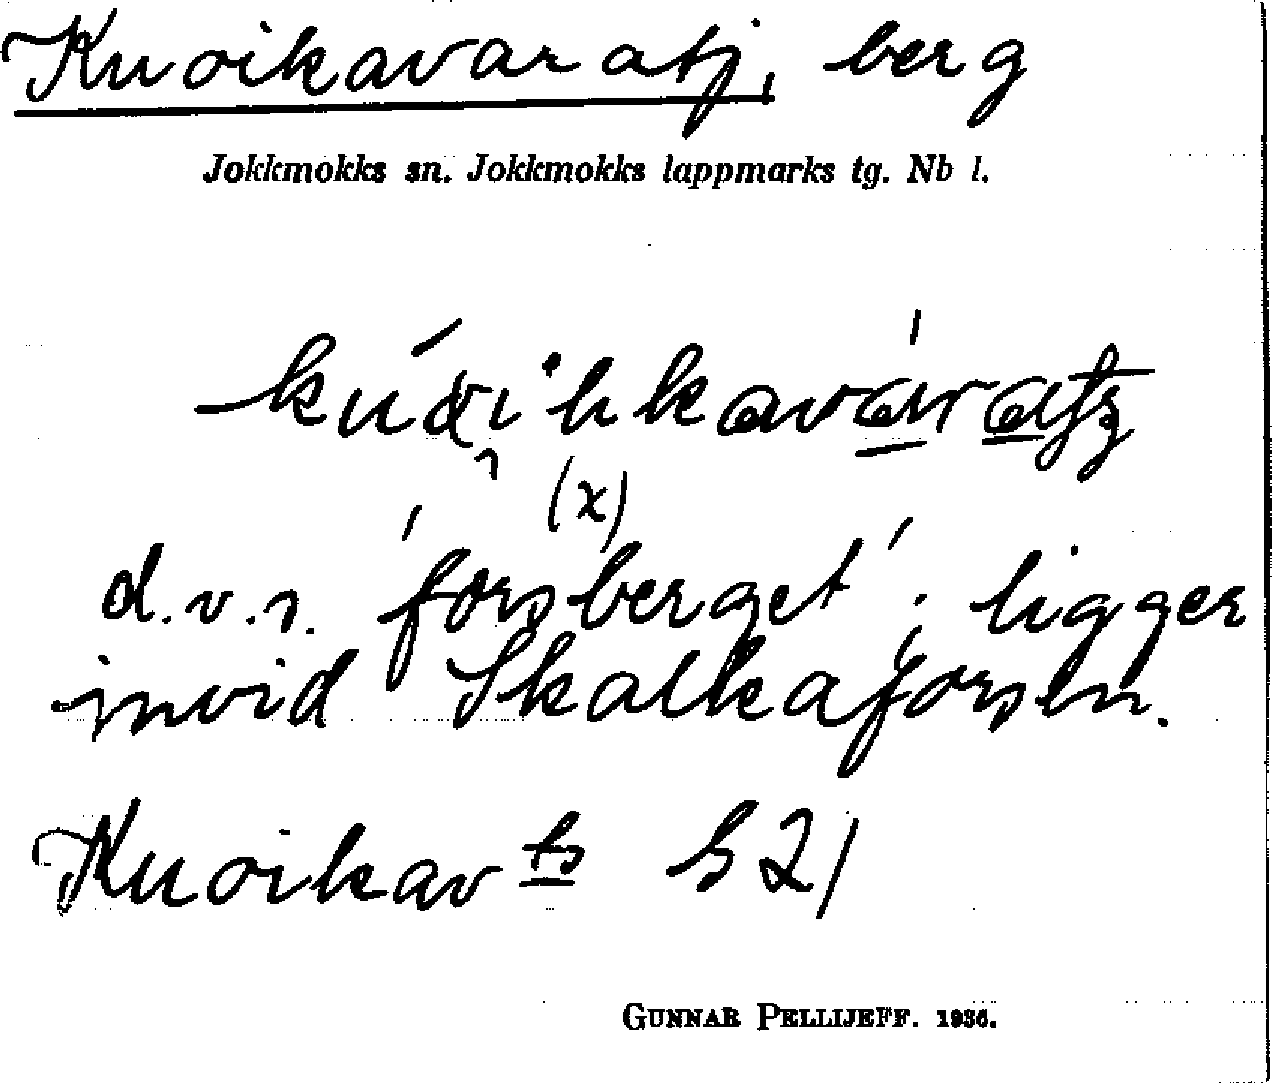 Kuoikavaratj, berg
Jokkmokks sn. Jokkmokks lappmarks tg. Nb l.
(x)
d.v.s. 'forsberget'; ligger
invid Skalkaforsen.
Kuoikav ts S 21
GUNNAR PELLIJEFF. 1936.